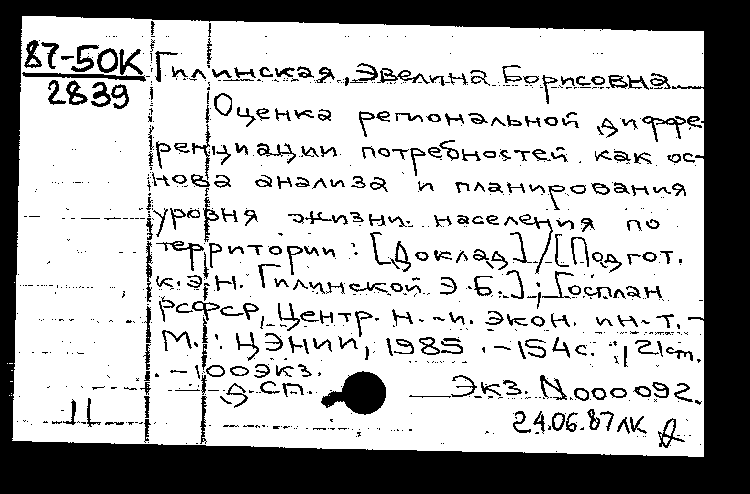 87-50К
2839
Гилинская, Эвелина Борисовна
Оценка региональной диффе-
ренциации потребностей как ос-
нова анализа и планирования
уровня жизни населения по
территории : [Доклад] / [Подгот.
к.э.н. Гилинской Э.Б.] ; Госплан
РСФСР, Центр. н.-и. экон. ин-т. -
М. : ЦЭНИИ, 1985 . - 154 с. ; 21 см.
. - 100 экз.
ДСП. Экз. N 000 092.
11
24.06.87 ЛК